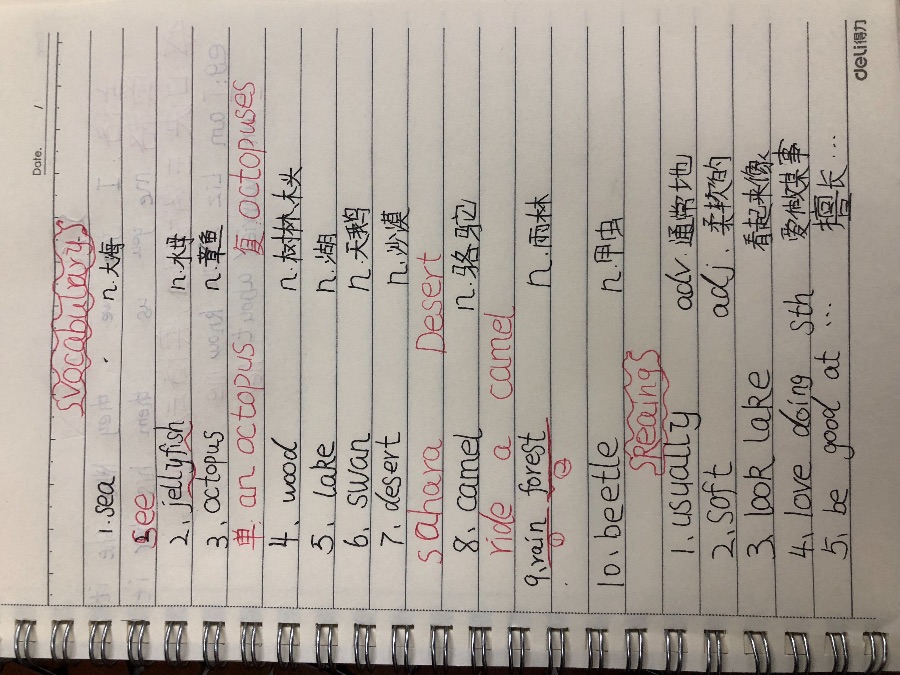 Date. /
Vocabulary
1. sea n. 大海
See
2. jellyfish n. 水母
3. octopus n. 章鱼
单. an octopus 复 octopuses
4. wood n. 树林,木头
5. lake n. 湖
6. swan n. 天鹅
7. desert n. 沙漠
sahara Desert
8. camel n. 骆驼
ride a camel
9. rain forest n. 雨林
① ②
10. beetle n. 甲虫
Reaing
1. usually adv. 通常地
2. soft adj. 柔软的
3. look lake 看起来像
4. love doing sth 爱做某事
5. be good at ... 擅长...
deli得力